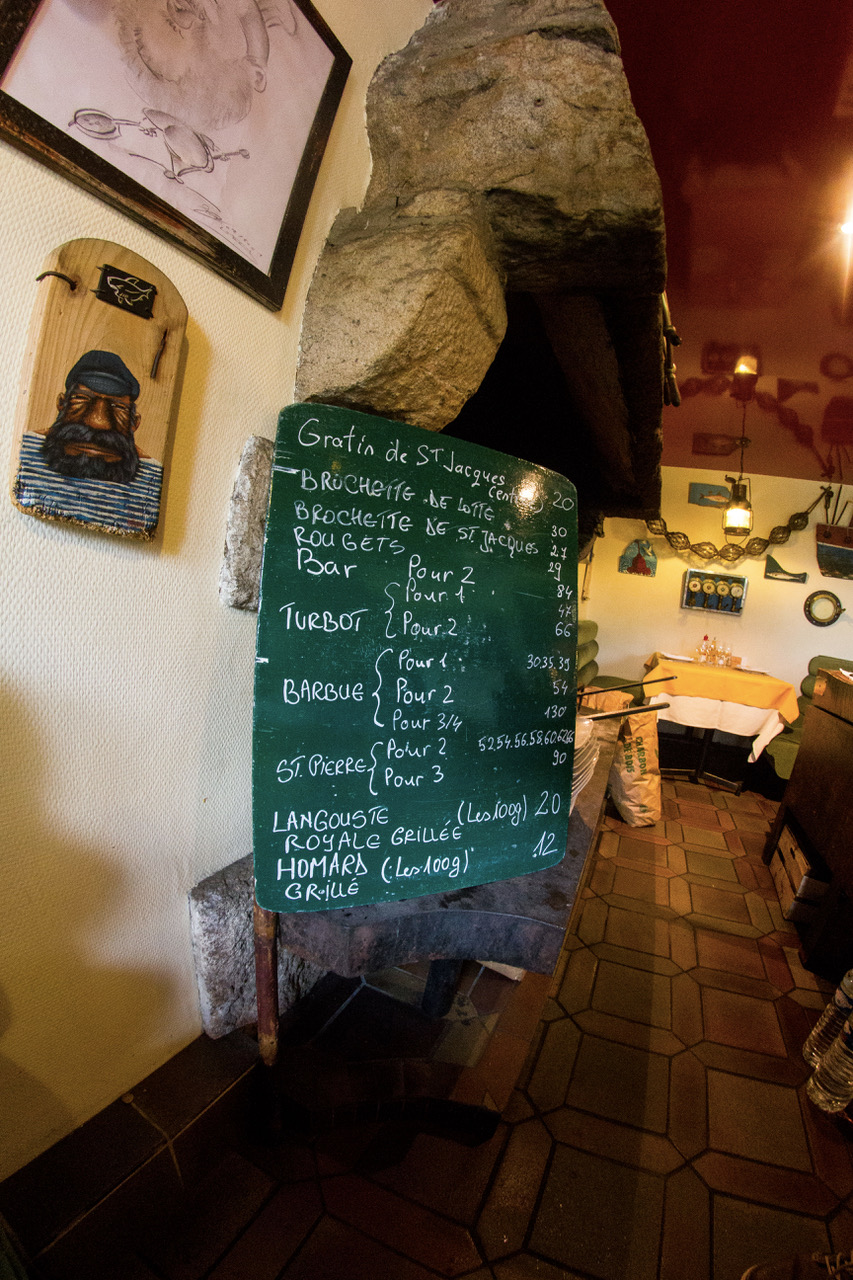 Gratin de ST Jacques (entrée) 20
BROCHETTE DE LOTTE 30
BROCHETTE DE ST JACQUES 27
ROUGETS 29
Bar Pour 2 84
TURBOT Pour 1 47
Pour 2 66
BARBUE Pour 1 30.35.39
Pour 2 54
Pour 3/4 130
ST. PIERRE Pour 2 52.54.56.58.60.62.66
Pour 3 90
LANGOUSTE (Les 100g) 20
ROYALE GRILLÉE
HOMARD (Les 100g) 12
GRILLÉ
CHARBON
DE BOIS